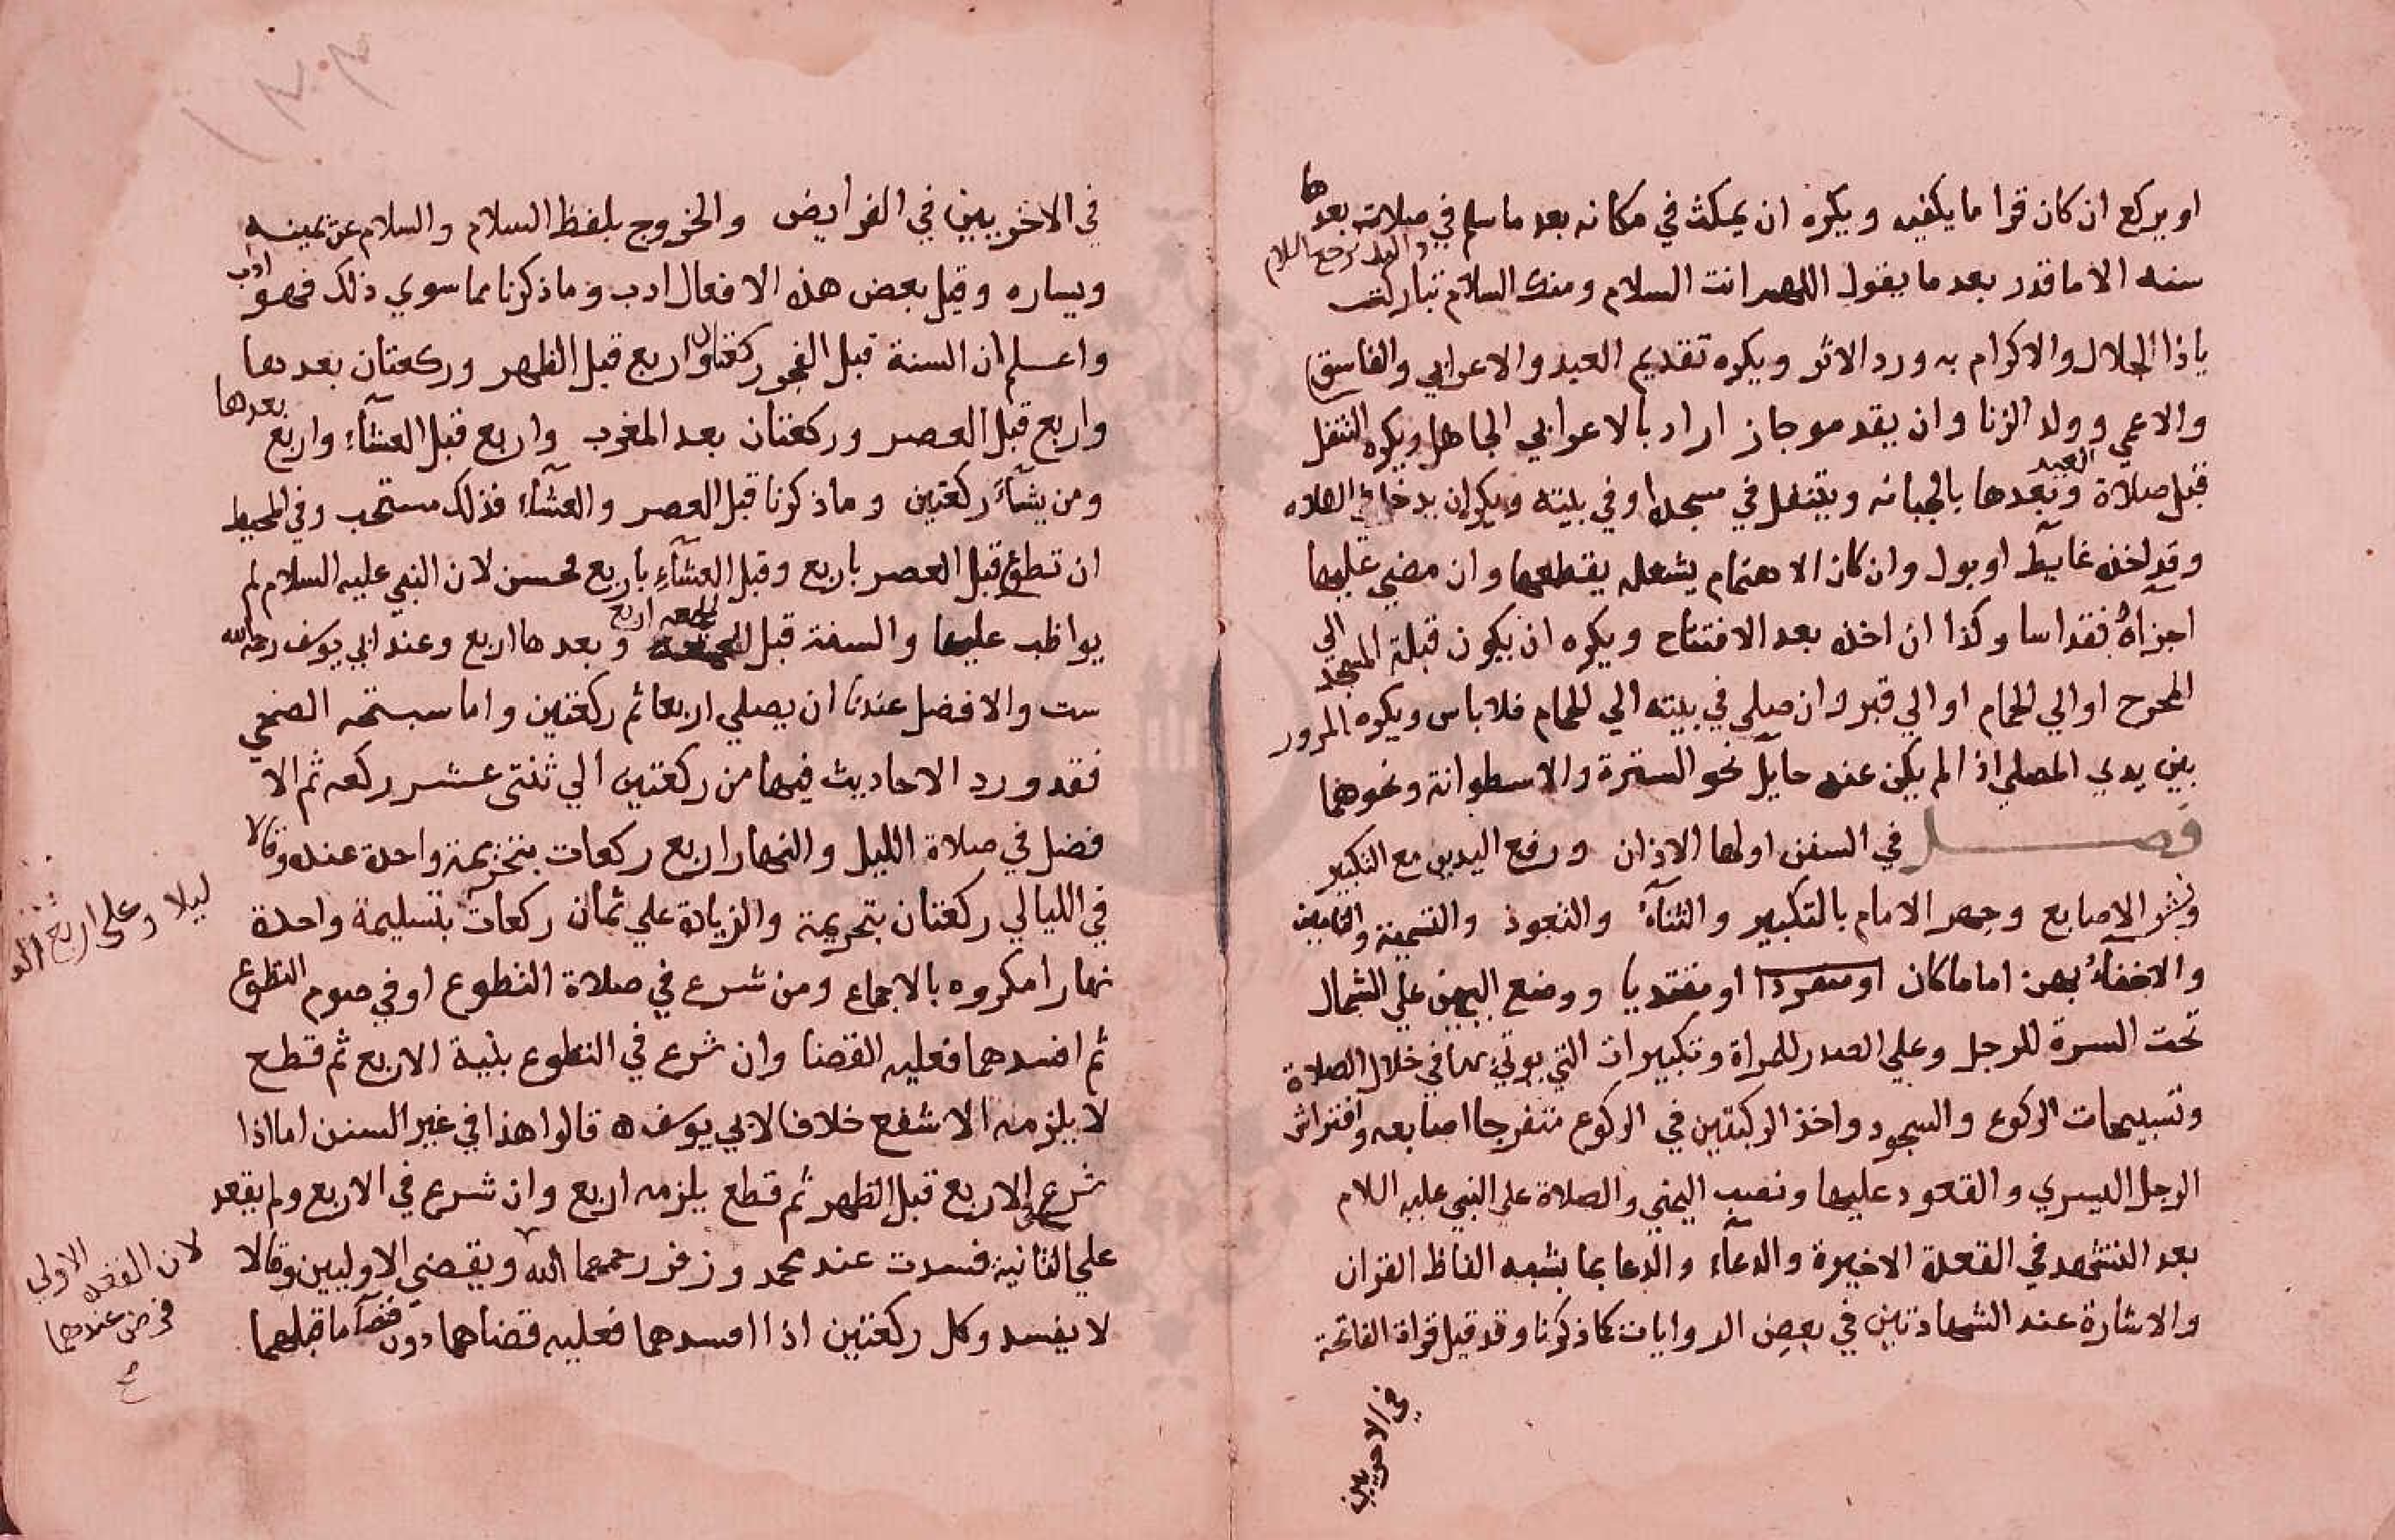 او يركع ان كان قرا ما يكفيه ويكره ان يمكث في مكانه بعد ما سلم في صلاته بعدها
سنه الا ما قدر بعد ما يقول اللهم انت السلام ومنك السلام تباركت
يا ذا الجلال والاكرام به ورد الاثر ويكره تقديم العبد والاعرابي والفاسق
والاعمي وولد الزنا وان يقدمو جاز اراد بالاعرابي الجاهل ويكره التنفل
قبل صلاة العيد وبعدها بالجبانه ويتنفل في مسجده او في بيته ويكره ان يدخل في الصلاه
وقد اخذه غايط او بول وان كان الاهتمام يشغله يقطعها وان مضي عليها
اجزاه فقد اسا وكذا ان اخذه بعد الافتتاح ويكره ان يكون قبلة المسجد الي
المخرج او الي الحمام او الي قبر وان صلي في بيته الي الحمام فلا باس ويكره المرور
بين يدي المصلي اذا لم يكن عنده حايل نحو السترة والاسطوانة ونحوهما
فصل في السنن اولها الاذان ورفع اليدين مع التكبير
ونشر الاصابع وجهر الامام بالتكبير والثنآء والتعوذ والتسمية والتامين
والاخفآء بهن اماما كان او منفردا او مقتديا ووضع اليمين علي الشمال
تحت السرة للرجل وعلي الصدر للمراة وتكبيرات التي يوتي بها في خلال الصلاة
وتسبيحات الركوع والسجود واخذ الركبتين في الركوع متفرجا اصابعه وافتراش
الرجل اليسري والقعود عليها ونصب اليمني والصلاة على النبي عليه السلام
بعد التشهد في القعدة الاخيرة والدعآء والدعا بما يشبه الفاظ القران
والاشارة عند الشهادتين في بعض الروايات كما ذكرنا وقد قيل قراة الفاتحة
في الاخريين
في الاخريين في الفرايض والخروج بلفظ السلام والسلام عن يمينه
ويساره وقيل بعض هذه الافعال ادب وما ذكرنا مما سوي ذلك فهو ادب
واعلم ان السنة قبل الفجر ركعتان واربع قبل الظهر وركعتان بعدها
واربع قبل العصر وركعتان بعد المغرب واربع قبل العشآء واربع بعدها
ومن يشآء ركعتين وما ذكرنا قبل العصر والعشآء فذلك مستحب وفي المحيط
ان تطوع قبل العصر باربع وقبل العشآء باربع فحسن لان النبي عليه السلام لم
يواظب عليها والسنة قبل الجمعه اربع وبعدها اربع وعند ابي يوسف رحمه الله
ست والافضل عندنا ان يصلي اربعا ثم ركعتين واما سبتحه الضحي
فقد ورد الاحاديث فيها من ركعتين الي ثنتى عشر ركعه ثم الا
فضل في صلاة الليل والنهار اربع ركعات بتحريمة واحدة عنده وقالا
في الليالي ركعتان بتحريمة والزيادة علي ثمان ركعات بتسليمة واحدة
ليلا وعلى اربع
نهارا مكروه بالاجماع ومن شرع في صلاة التطوع او في صوم التطوع
ثم افسدهما فعليه القضا وان شرع في التطوع بنية الاربع ثم قطع
لا يلزمه الا شفع خلافا لابي يوسف ه قالوا هذا في غير السنن اما اذا
شرع في الاربع قبل الظهر ثم قطع يلزمه اربع وان شرع في الاربع ولم يقعد
علي الثانية فسدت عند محمد وزفر رحمهما الله ويقضي الاوليين وقالا
لان القعده الاولي
فرض عندهما
لا يفسد وكل ركعتين اذا افسدهما فعليه قضاهما دون قضآ ما قبلهما